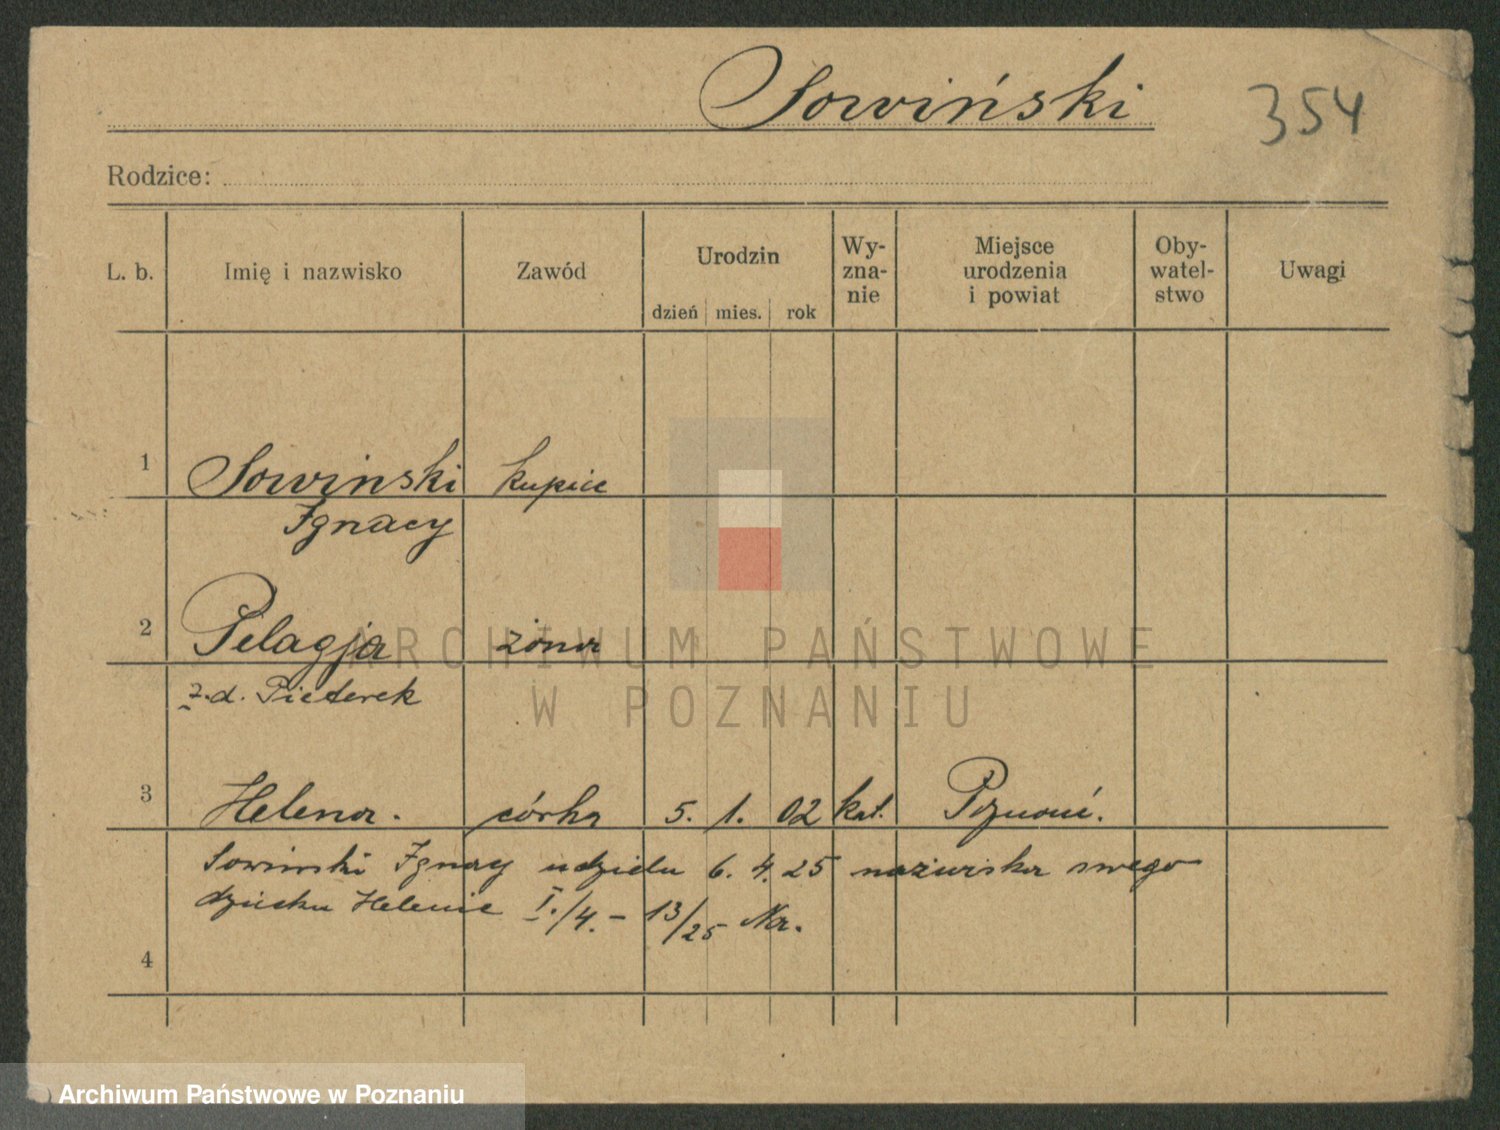 Sowiński
354
Rodzice:
L. b. Imię i nazwisko Zawód Urodzin dzień mies. rok Wy-zna-nie Miejsce urodzenia i powiat Oby-watel-stwo Uwagi
1 Sowinski kupiec
Ignacy
2 Pelagja żona
z d. Pieterek
3 Helena. córka 5. 1. 02 kat. Poznań.
Sowinski Ignacy udziela 6. 4. 25 nazwiska swego
dziecku Helenie I./4. - 13/25 Na.
4
ARCHIWUM PAŃSTWOWE
W POZNANIU
Archiwum Państwowe w Poznaniu